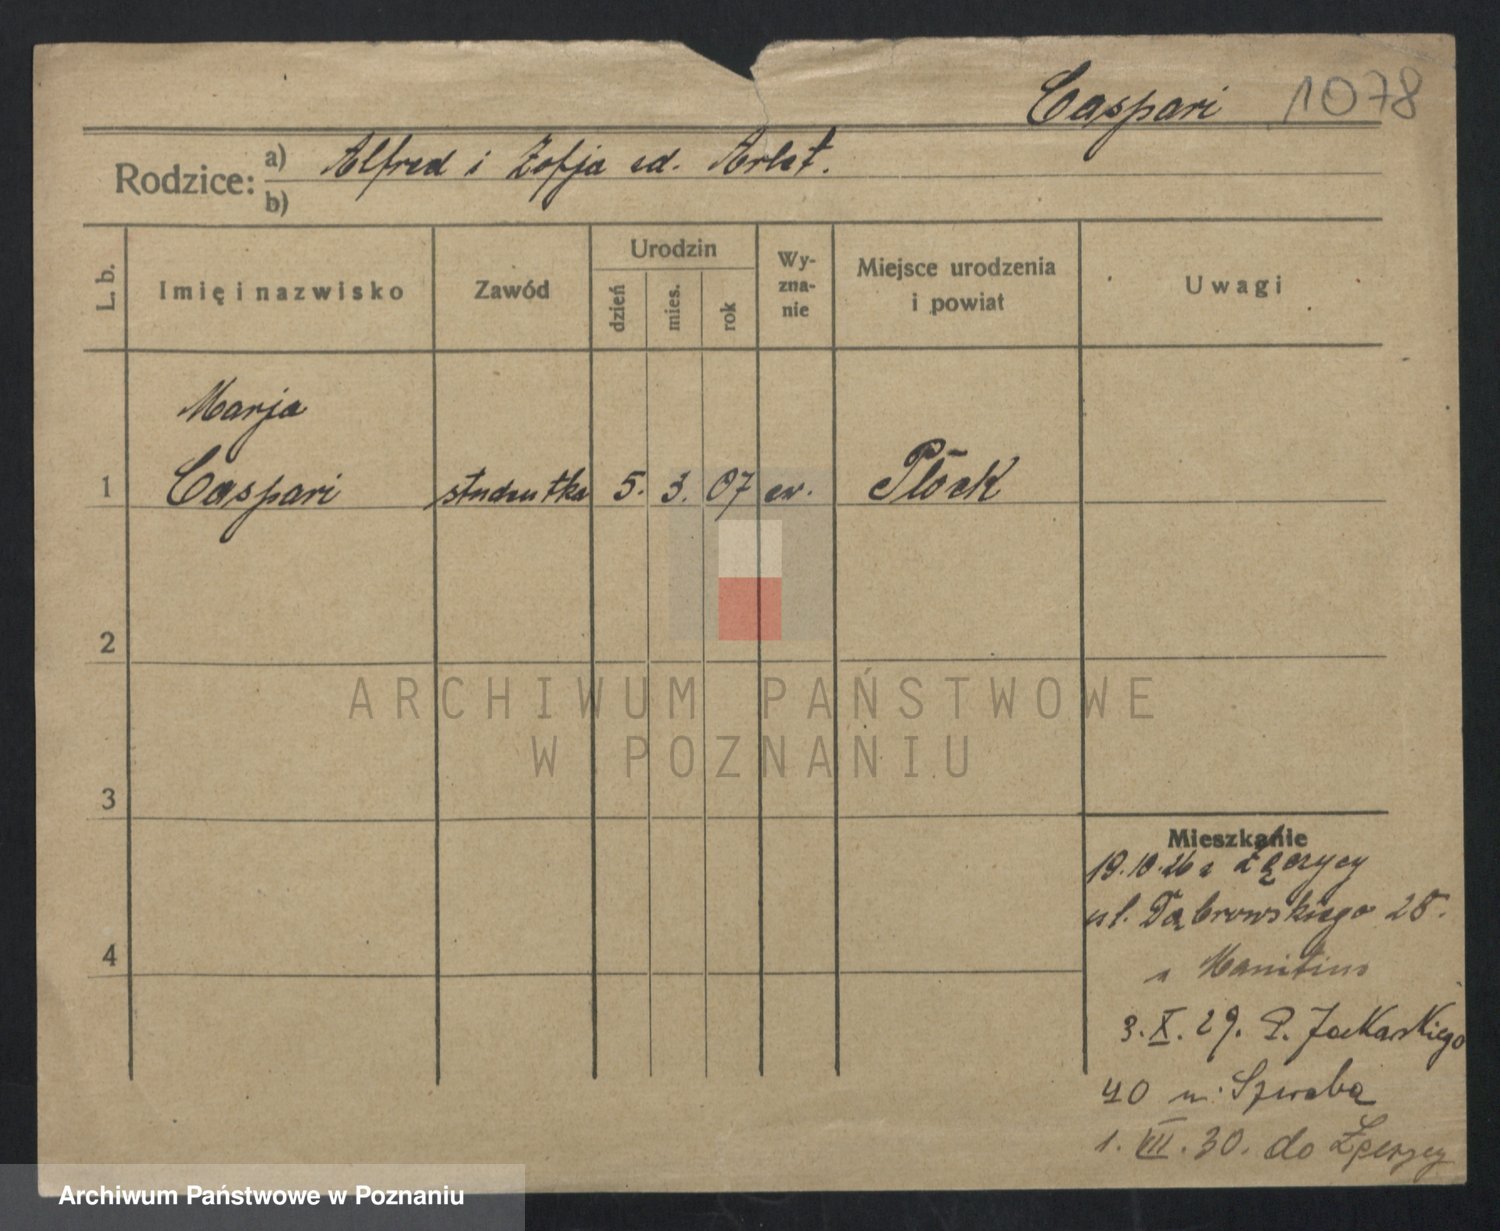 Caspari 1078
Rodzice: a) Alfred i Zofja zd. Arlet.
b)
L. b.
Imię i nazwisko
Zawód
Urodzin
dzień
mies.
rok
Wy-
zna-
nie
Miejsce urodzenia
i powiat
Uwagi
Marja
1 Caspari studentka 5. 3. 07 ew. Płock
2
3
4
ARCHIWUM PAŃSTWOWE
W POZNANIU
Mieszkanie
19.10.26 z Łęczycy
ul. Dąbrowskiego 28.
u Manitius
3. X. 29. P. Jackowskiego
40 u Szwaba
1. VII. 30. do Łęczycy
Archiwum Państwowe w Poznaniu